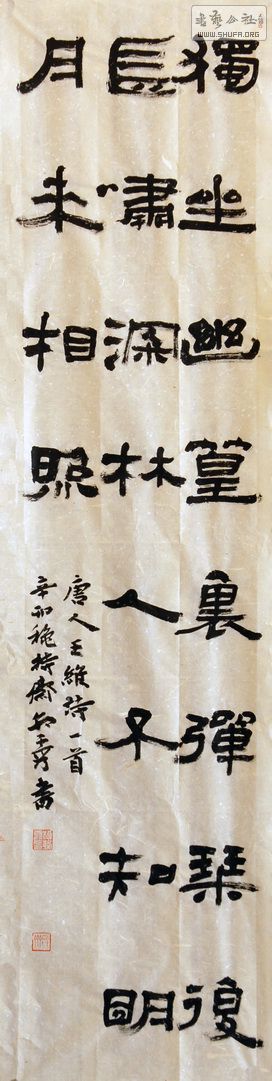 獨坐幽篁裏彈琴復
長嘯深林人不知明
月来相照
唐人王維詩一首
辛卯
書
WWW.SHUFA.ORG